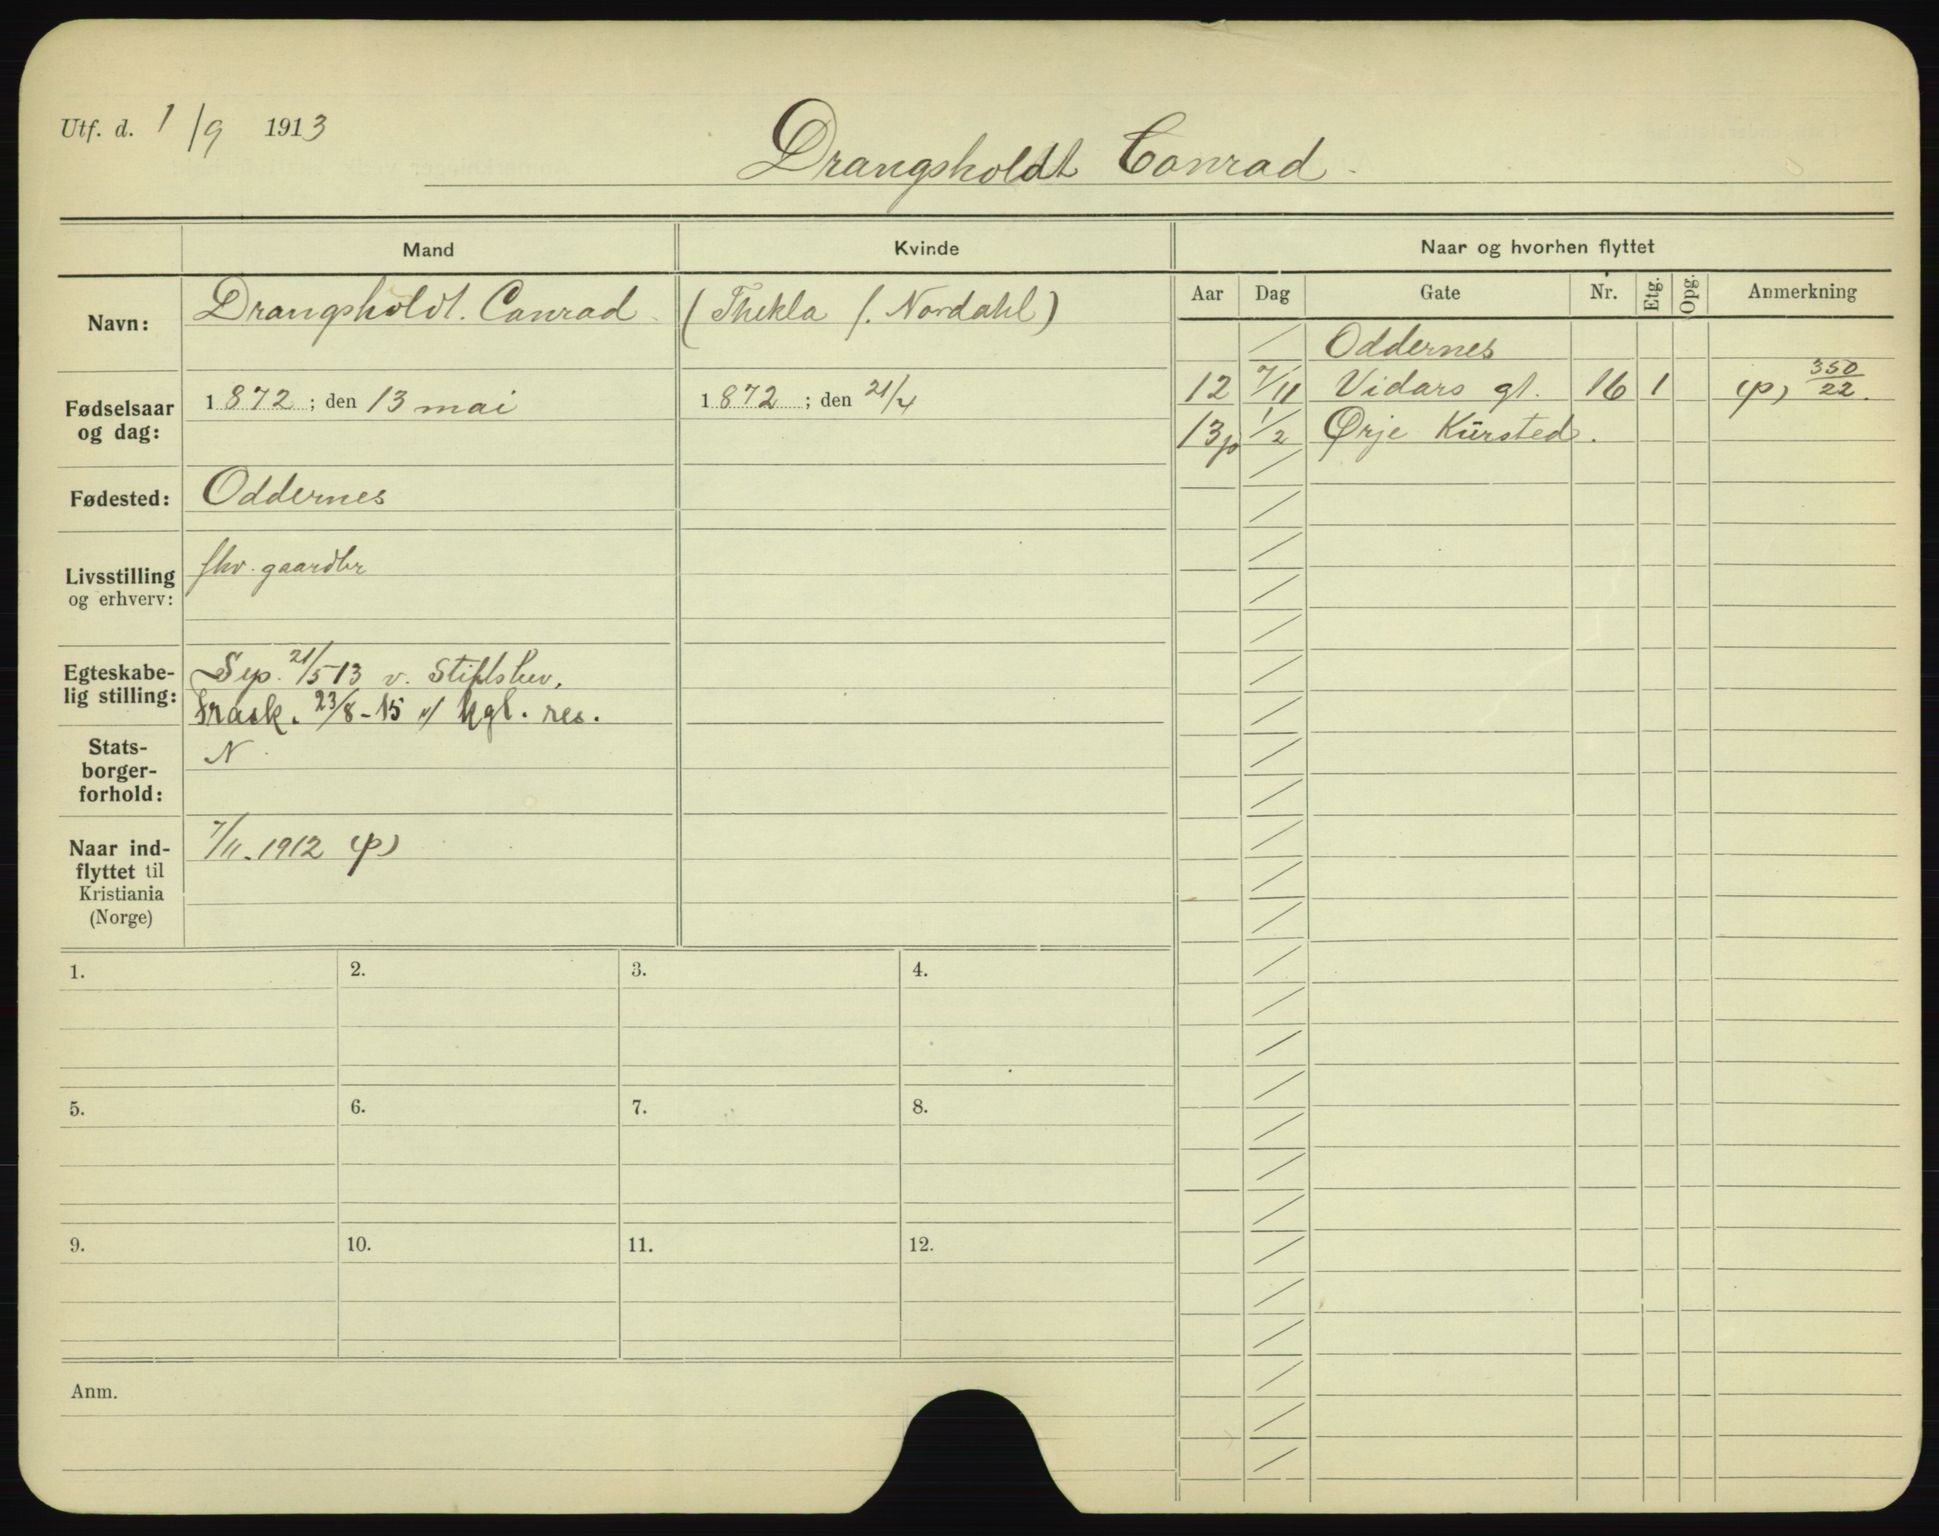 Utf. d. 1/9 1913
Drangsholdt Conrad
Mand
Kvinde
Naar og hvorhen flyttet
Navn:
Drangsholdt. Conrad
(Thekla f. Nordahl)
Fødselsaar og dag:
1872; den 13 mai
1872; den 21/4
Fødested:
Oddernes
Livsstilling og erhverv:
fhv. gaardbr
Egteskabe-
lig stilling:
Sep. 21/5-13 v. Stiftsbev.
Frask. 23/8-15 v/ kgl. res.
Stats-
borger-
forhold:
N
Naar ind-
flyttet til
Kristiania
(Norge)
7/11. 1912 (p)
Aar Dag Gate Nr. Etg. Opg. Anmerkning
/ Oddernes
12 7/11 Vidars gt. 16 1 (p) 350/22.
13 p 1/2 Ørje Kursted.
1. 2. 3. 4.
5. 6. 7. 8.
9. 10. 11. 12.
Anm.